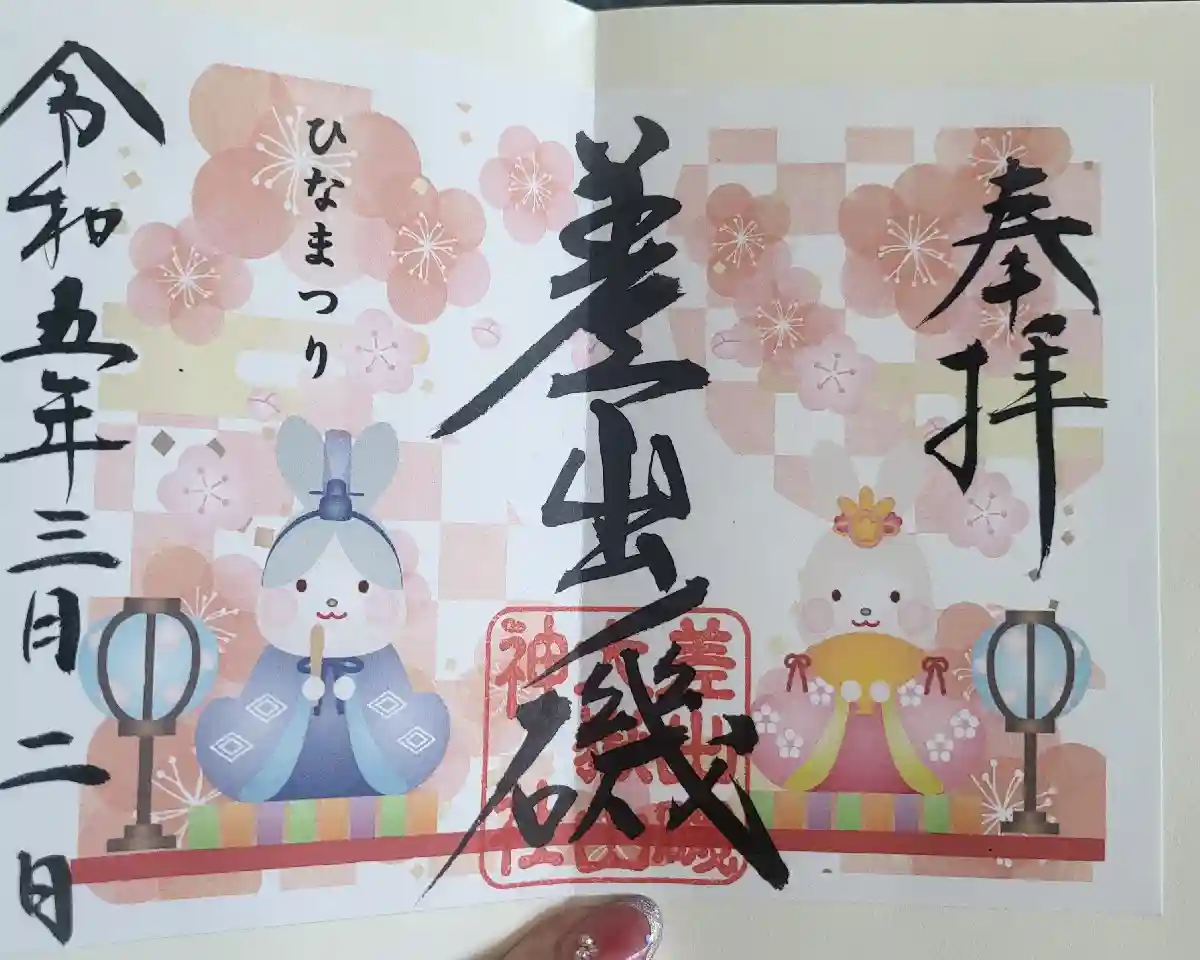 奉拝
差出磯
差出磯
大嶽山
神社
ひなまつり
令和五年三月二日